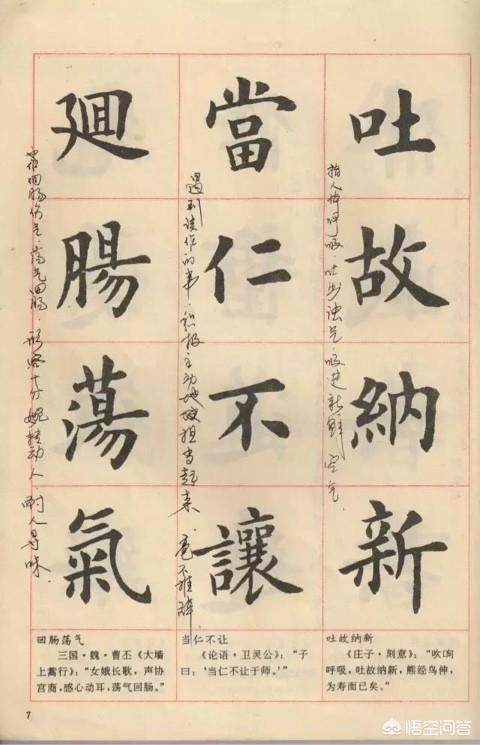 吐故納新
指人体呼吸，吐出浊气，吸进新鲜空气。
當仁不讓
遇到该作的事，积极主动地担当起来，毫不推辞
廻腸蕩氣
亦作回肠伤气、荡气回肠。形容十分婉转动人，耐人寻味。
回肠荡气
三国·魏·曹丕《大墙
上蒿行》：“女娥长歌，声协
宫商，感心动耳，荡气回肠。”
当仁不让
《论语·卫灵公》：“子
曰：‘当仁不让于师。’”
吐故纳新
《庄子·刻意》：“吹呴
呼吸，吐故纳新，熊经鸟伸，
为寿而已矣。”
7
悟空问答